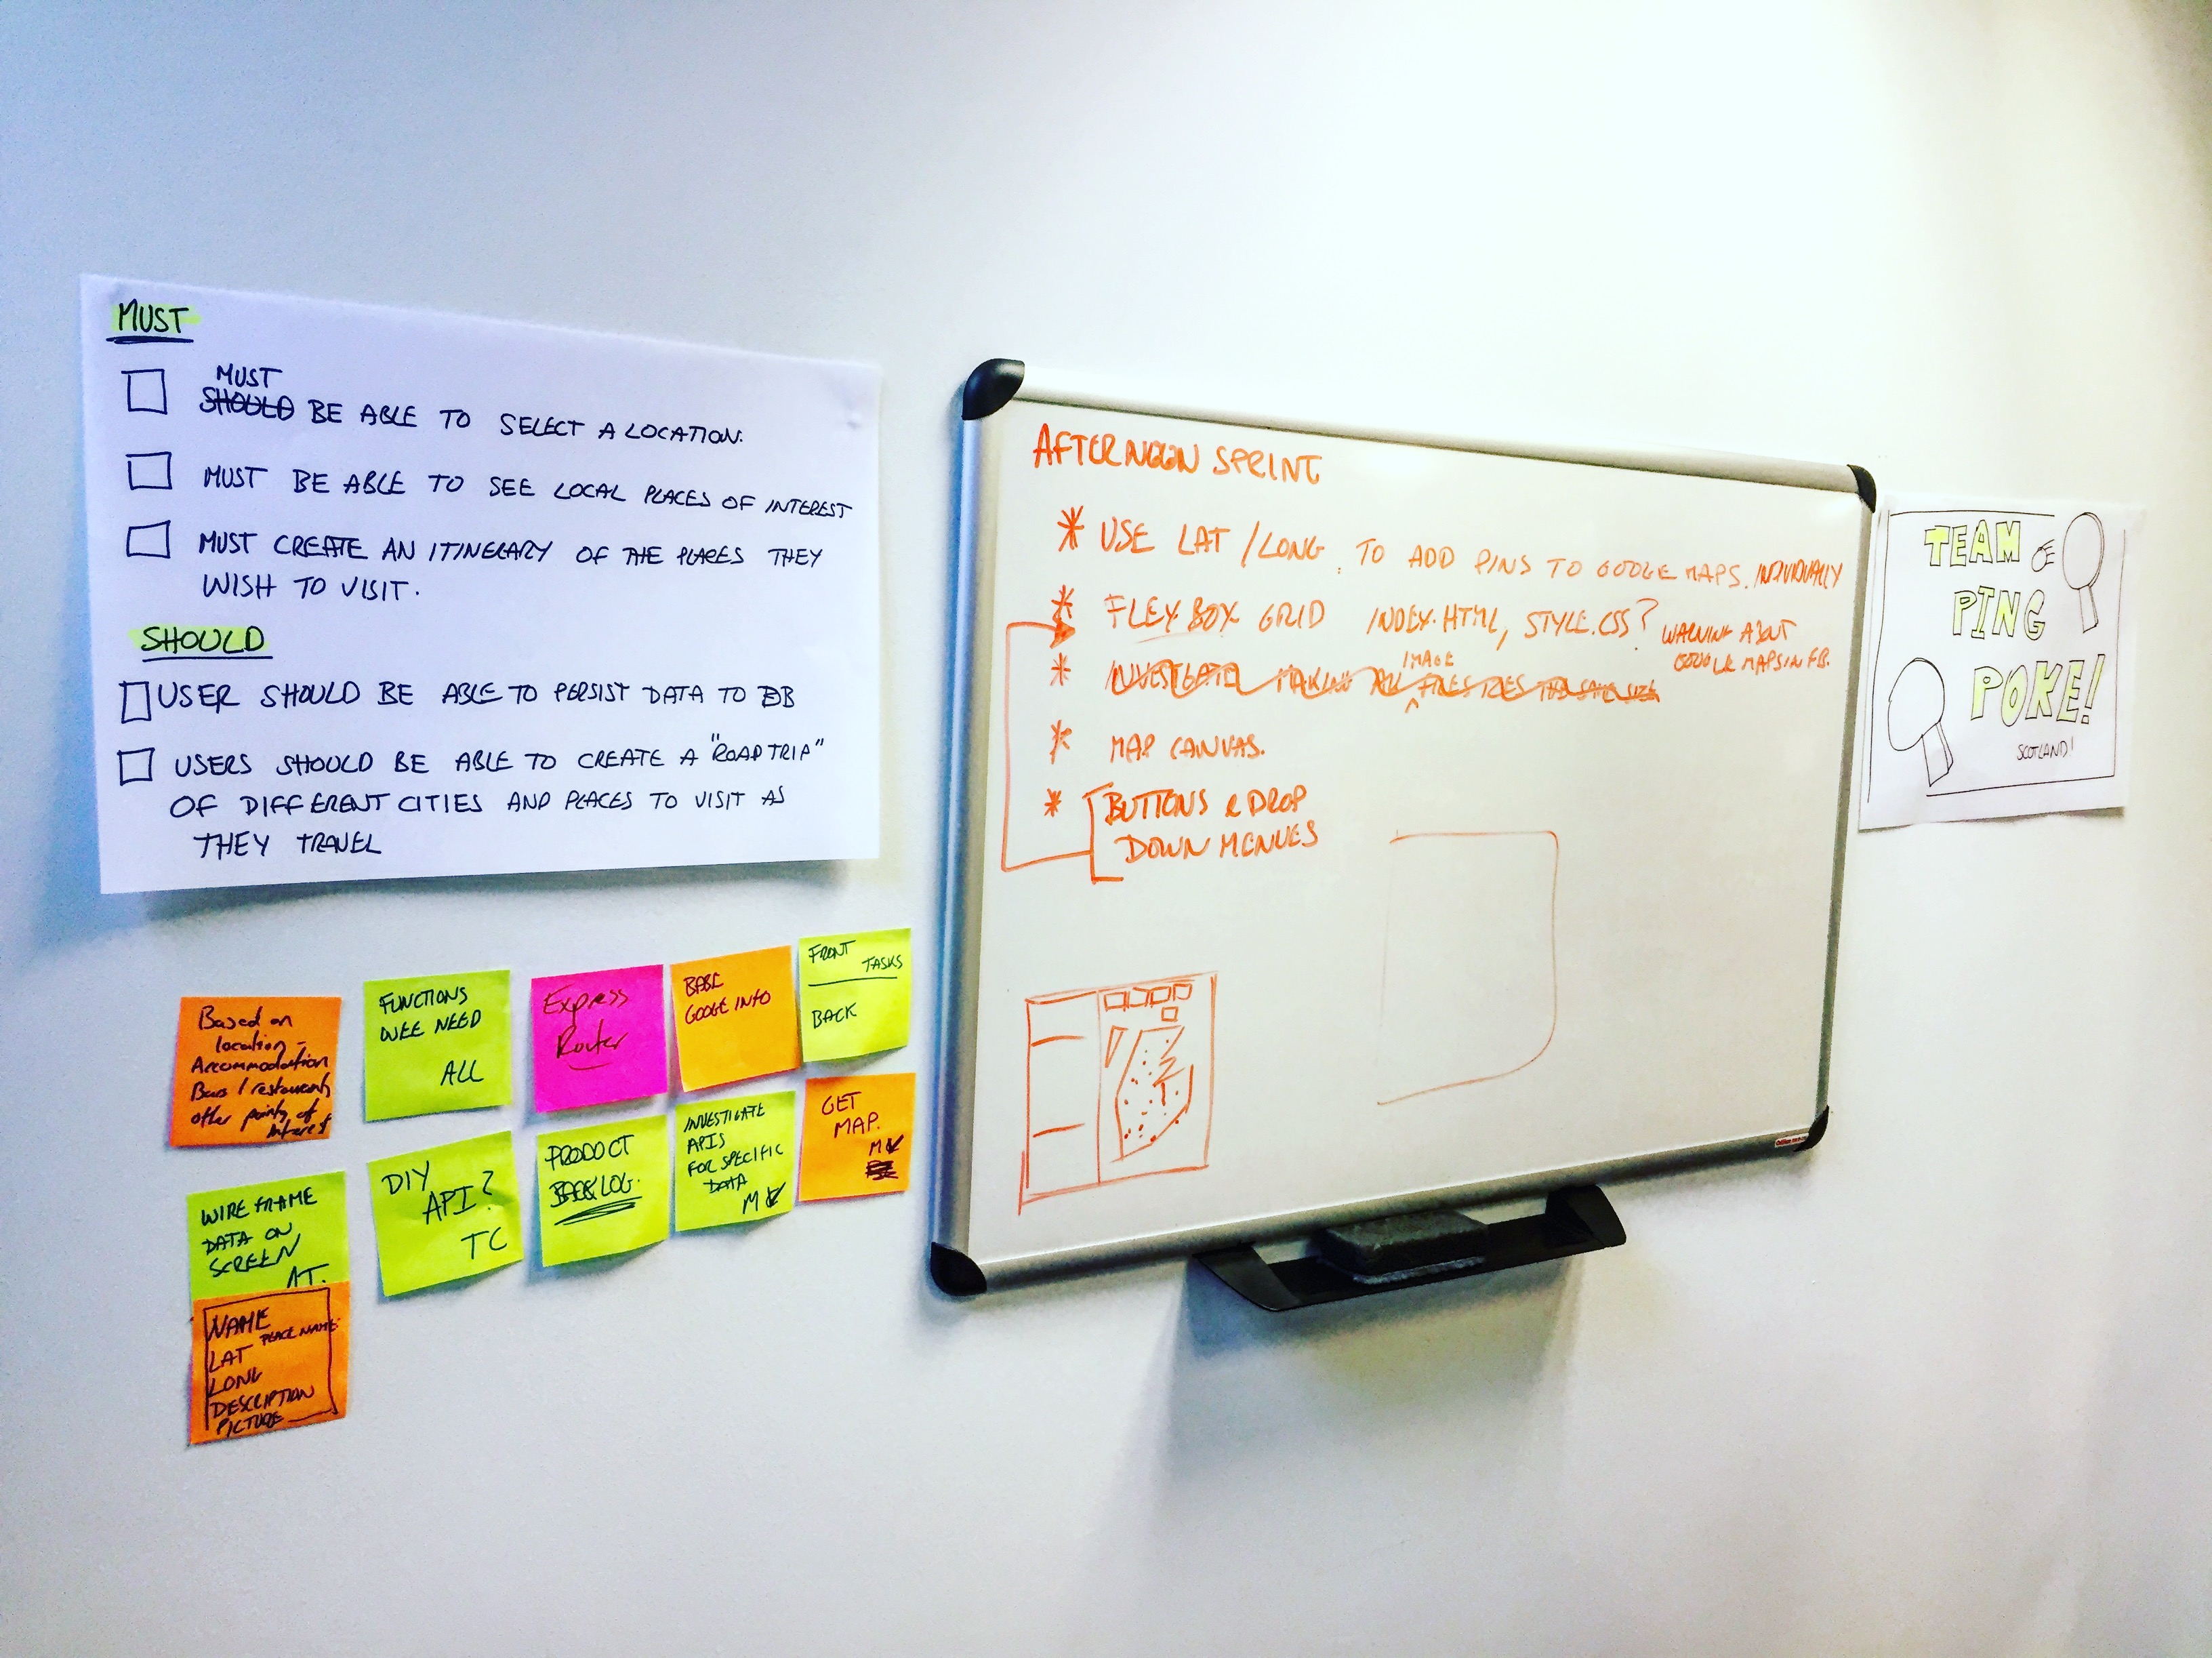 MUST
MUST
SHOULD BE ABLE TO SELECT A LOCATION.
MUST BE ABLE TO SEE LOCAL PLACES OF INTEREST
MUST CREATE AN ITINERARY OF THE PLACES THEY
WISH TO VISIT.
SHOULD
USER SHOULD BE ABLE TO PERSIST DATA TO DB
USERS SHOULD BE ABLE TO CREATE A "ROAD TRIP"
OF DIFFERENT CITIES AND PLACES TO VISIT AS
THEY TRAVEL
Based on
location -
Accommodation
Bars / restaurants
other points of
interest
FUNCTIONS
WEE NEED
ALL
Express
Router
BABL
GOOGLE INFO
FRONT
TASKS
BACK
WIRE FRAME
DATA ON
SCREEN
AT.
DIY
API?
TC
PRODUCT
BACKLOG.
INVESTIGATE
APIS
FOR SPECIFIC
DATA
GET
MAP.
NAME
PLACE NAME.
LAT
LONG
DESCRIPTION
PICTURE
AFTERNOON SPRINT
* USE LAT / LONG TO ADD PINS TO GOOGLE MAPS. INDIVIDUALLY
* FLEX BOX GRID INDEX.HTML, STYLE.CSS? WARNING ABOUT
GOOGLE MAPS IN FB.
IMAGE
* INVESTIGATE MAKING ALL FILES THE SAME SIZE
* MAP CANVAS.
* BUTTONS & DROP
DOWN MENUES
TEAM
PING
POKE!
SCOTLAND!